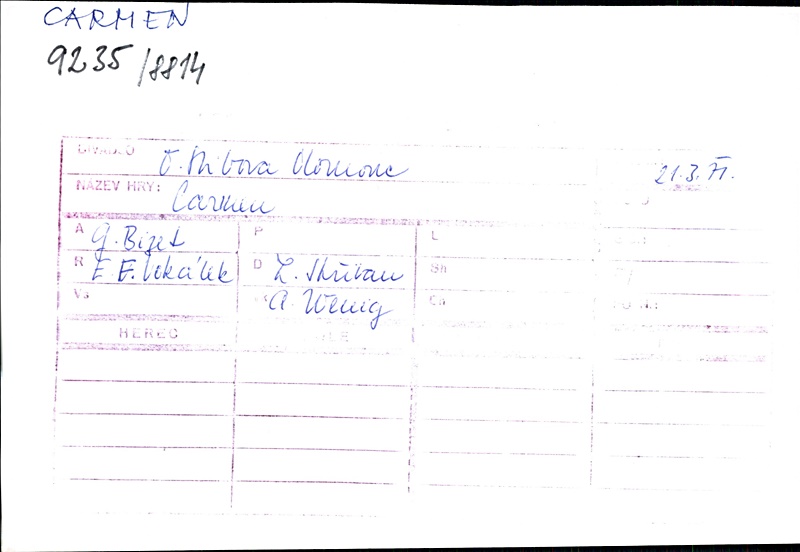 CARMEN
9235/8814
DIVADLO O. Stibora Olomouc
21.3.71.
NÁZEV HRY: Carmen
A G. Bizet P L
R E. F. Vokálek D Z. Skřivan Sh
Vs A. Wenig Ch
HEREC